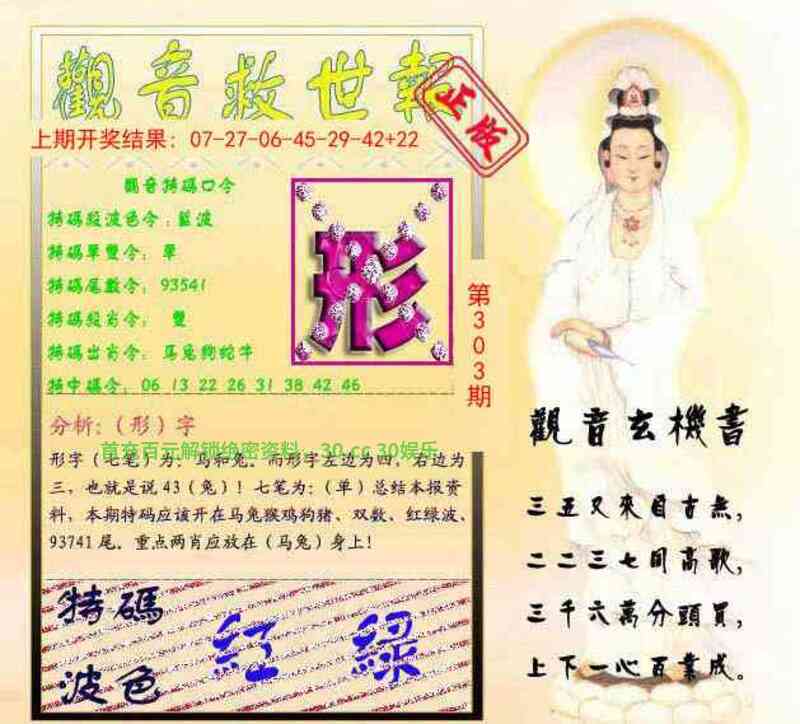 觀音救世報
正版
上期开奖结果：07-27-06-45-29-42+22
觀音特碼口令
特碼段波色令：藍波
特碼單雙令：單
特碼尾數令：93541
特碼段肖令：雙
特碼出肖令：马兔狗蛇牛
特中碼令：06 13 22 26 31 38 42 46
形
第303期
分析：（形）字
首充百元解锁绝密资料：30.cc 30娱乐
形字（七笔）为：马和兔。而形字左边为四，右边为
三，也就是说 43（兔）！七笔为：（单）总结本报资
料，本期特码应该开在马兔猴鸡狗猪、双数、红绿波、
93741 尾。重点两肖应放在（马兔）身上！
特碼
波色
紅 綠
觀音玄機書
三五又來自古無，
二二三七間高歌，
三千六萬分頭買，
上下一心百業成。